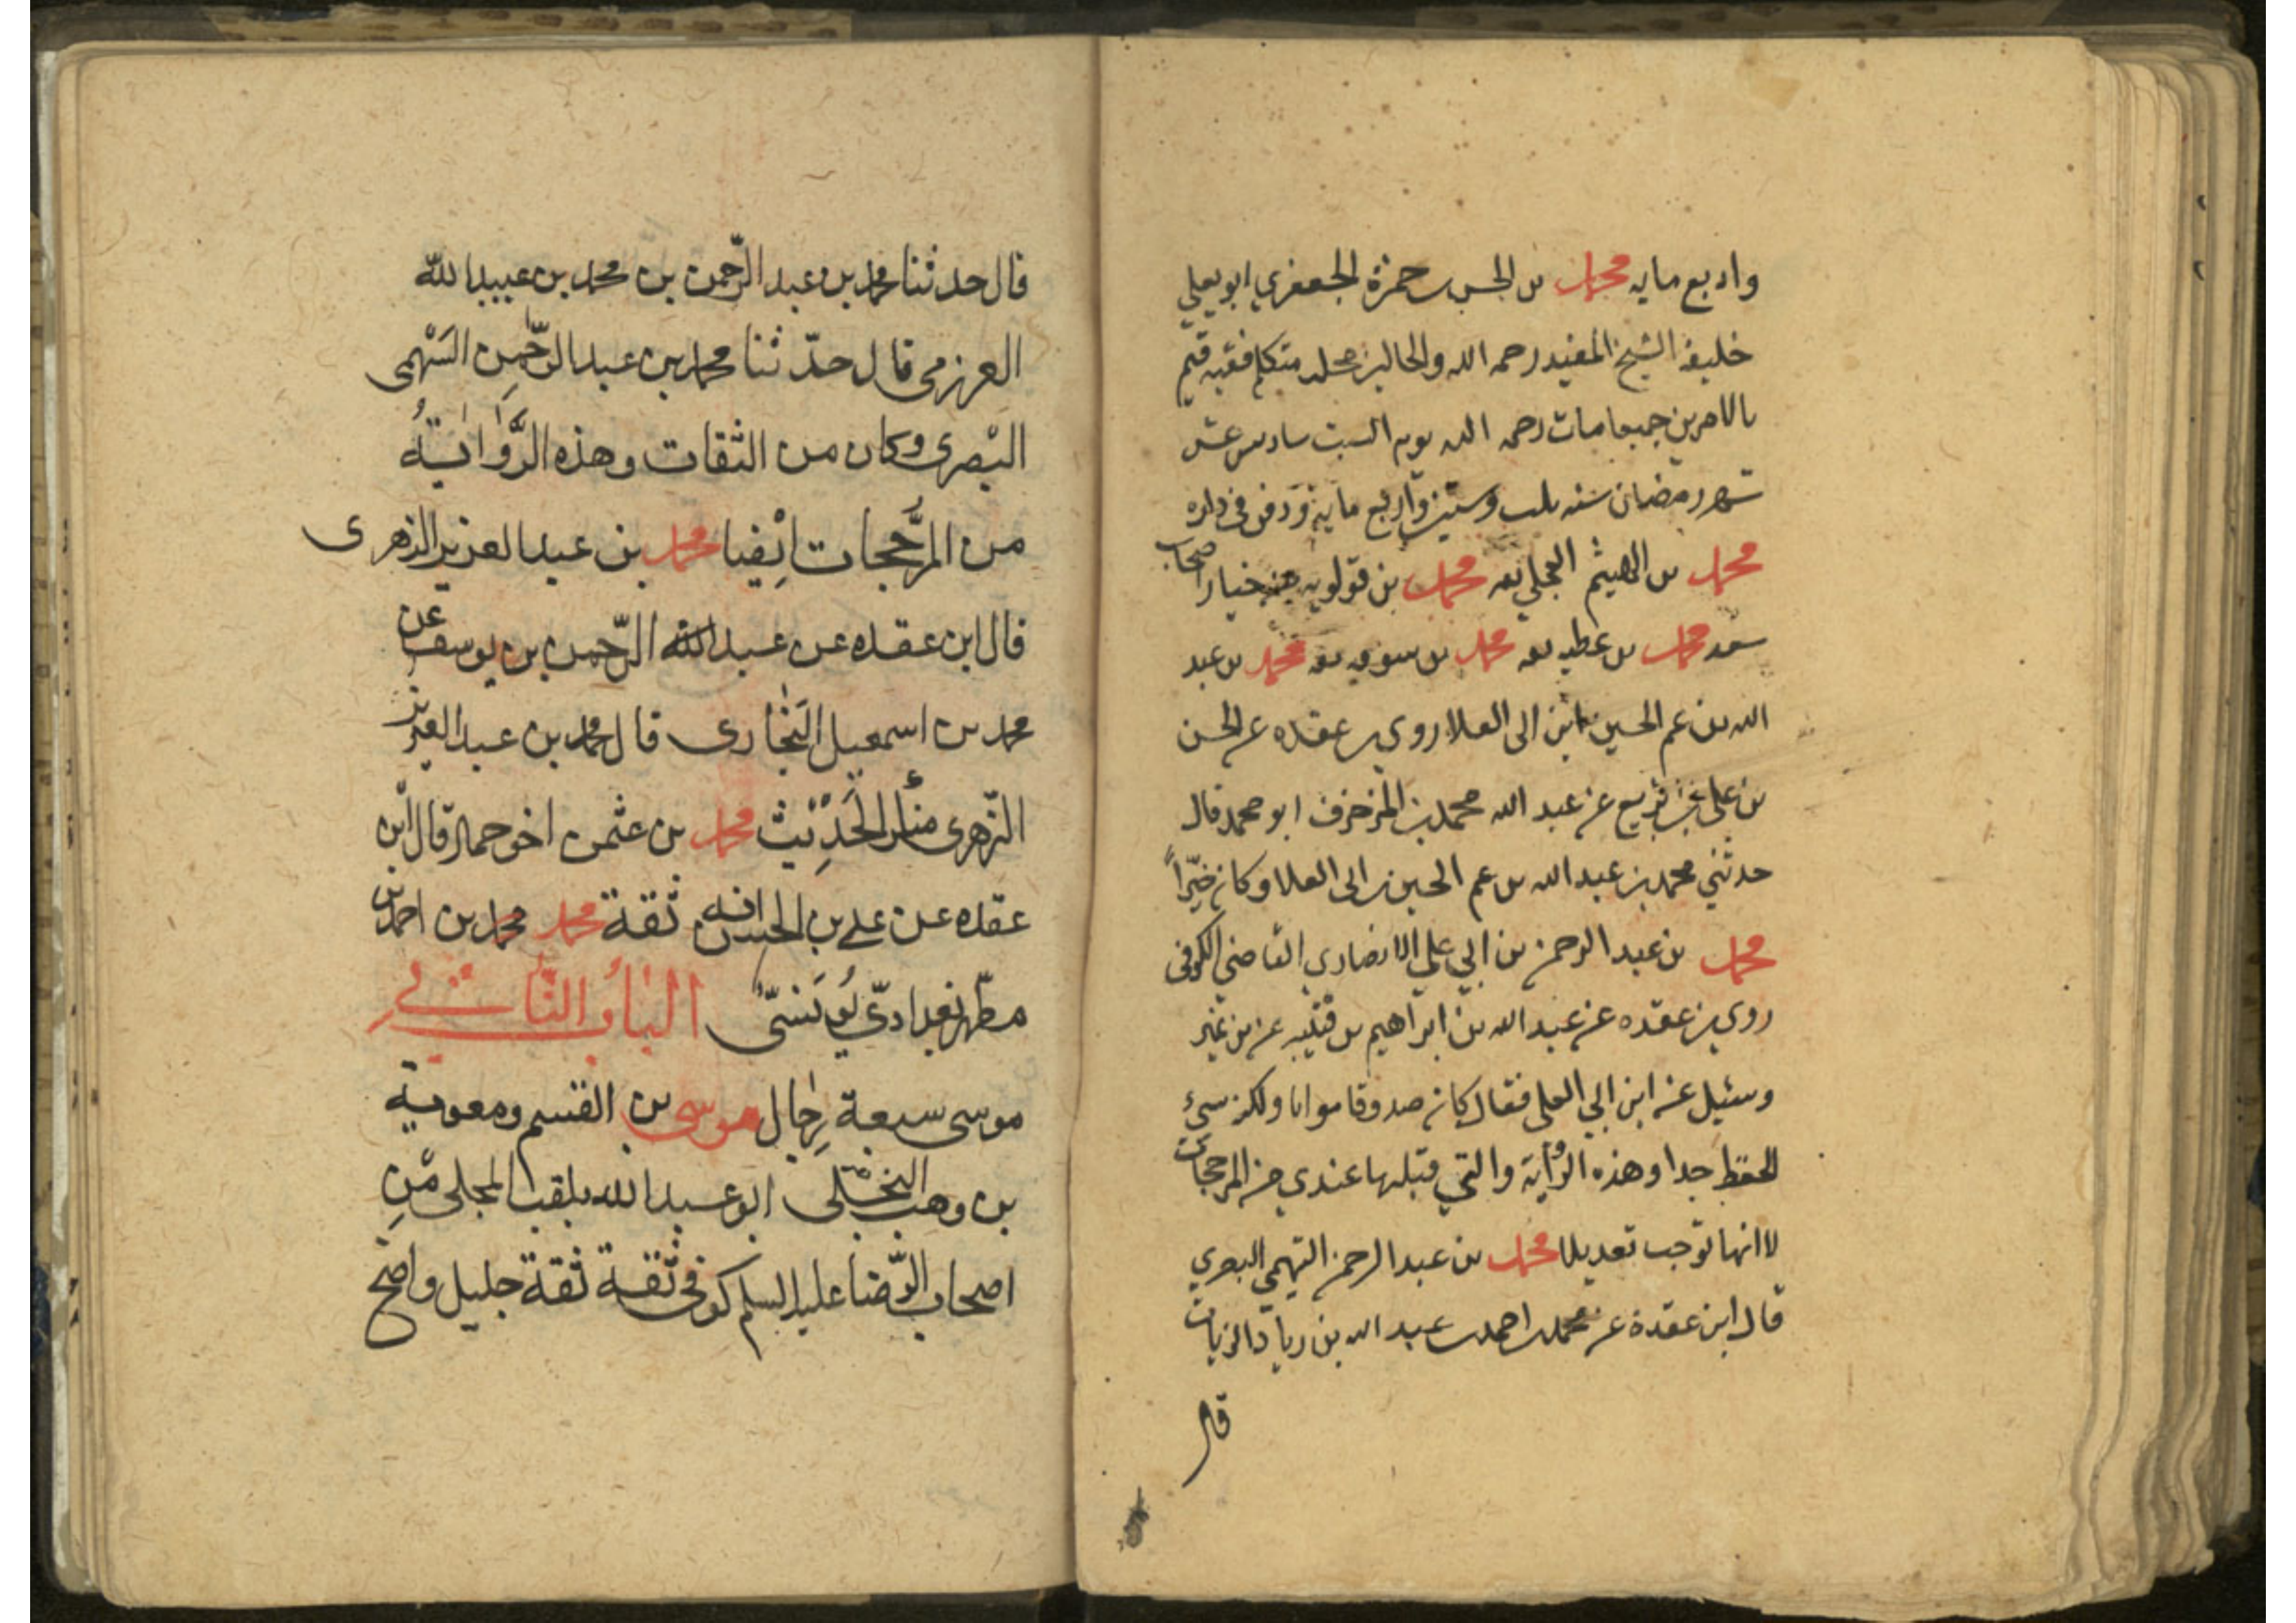 واربع مايه محمد بن الحسن بن حمزة الجعفري ابو يعلي
خليفة الشيخ المفيد رحمه الله والجالس مجلسه متكلم فقيه قيم
بالامرين جميعا مات رحمه الله يوم السبت سادس عشر
شهر رمضان سنه ثلث وستين واربع ماية ودفن في داره
محمد بن الهيثم العجلي ثقه محمد بن قولويه من خيار اصحاب
سعد محمد بن عطيه ثقه محمد بن سوقه ثقه محمد بن عبد
الله بن عم الحسين بن ابي العلا روي بن عقده عن الحسن
بن علي بن بزيع عن عبد الله محمد بن المزخرف ابو محمد قال
حدثني محمد بن عبد الله بن عم الحسين بن ابي العلا وكان خيّراً
محمد بن عبد الرحمن بن ابي علي الانصاري القاضي الكوفي
روي بن عقده عن عبد الله بن ابراهيم بن قتيبه عن بن نمير
وسئيل عن ابن ابي العلي فقال كان صدوقا مواما ولكن سيئ
الحفظ جدا وهذه الرواية والتي قبلها عندي من المرجحات
لا انها توجب تعديلا محمد بن عبد الرحمن التهمي البصري
قال ابن عقدة عن محمد بن احمد بن عبد الله بن زياد الزيات
قال
قال حدثنا محمد بن عبد الرّحمن بن محمد بن عبيد الله
العرزمي قال حدّثنا محمد بن عبد الرّحمٰنِ السَهْمى
البْصرى وكان من الثقات وهذه الرَّوٰايَةُ
من المرَّجحات ايْضا محمد بن عبد العزيز الزهرى
قال ابن عقده عن عبد الله الرّحمن بن يوسف عن
محمد بن اسمعيل البَخٰارى قال محمد بن عبد العزيز
الزّهرى منكر الحَدِيْث محمد بن عثمن اخو حماد قال ابن
عقده عن علے بن الحسن انه ثقة محمد محمد بن احمد بن
مطهر بغدادىّ يُونسىّ البٰابُ الثّانے
موسى سبعة رِجٰال موسى بن القسم ومعوية
بن وهب البخّلى ابو عبد الله يلقب المجلى مّنِ
اصحاب الرّضا عليه السلم كوفى ثقة ثقة جليل واضح